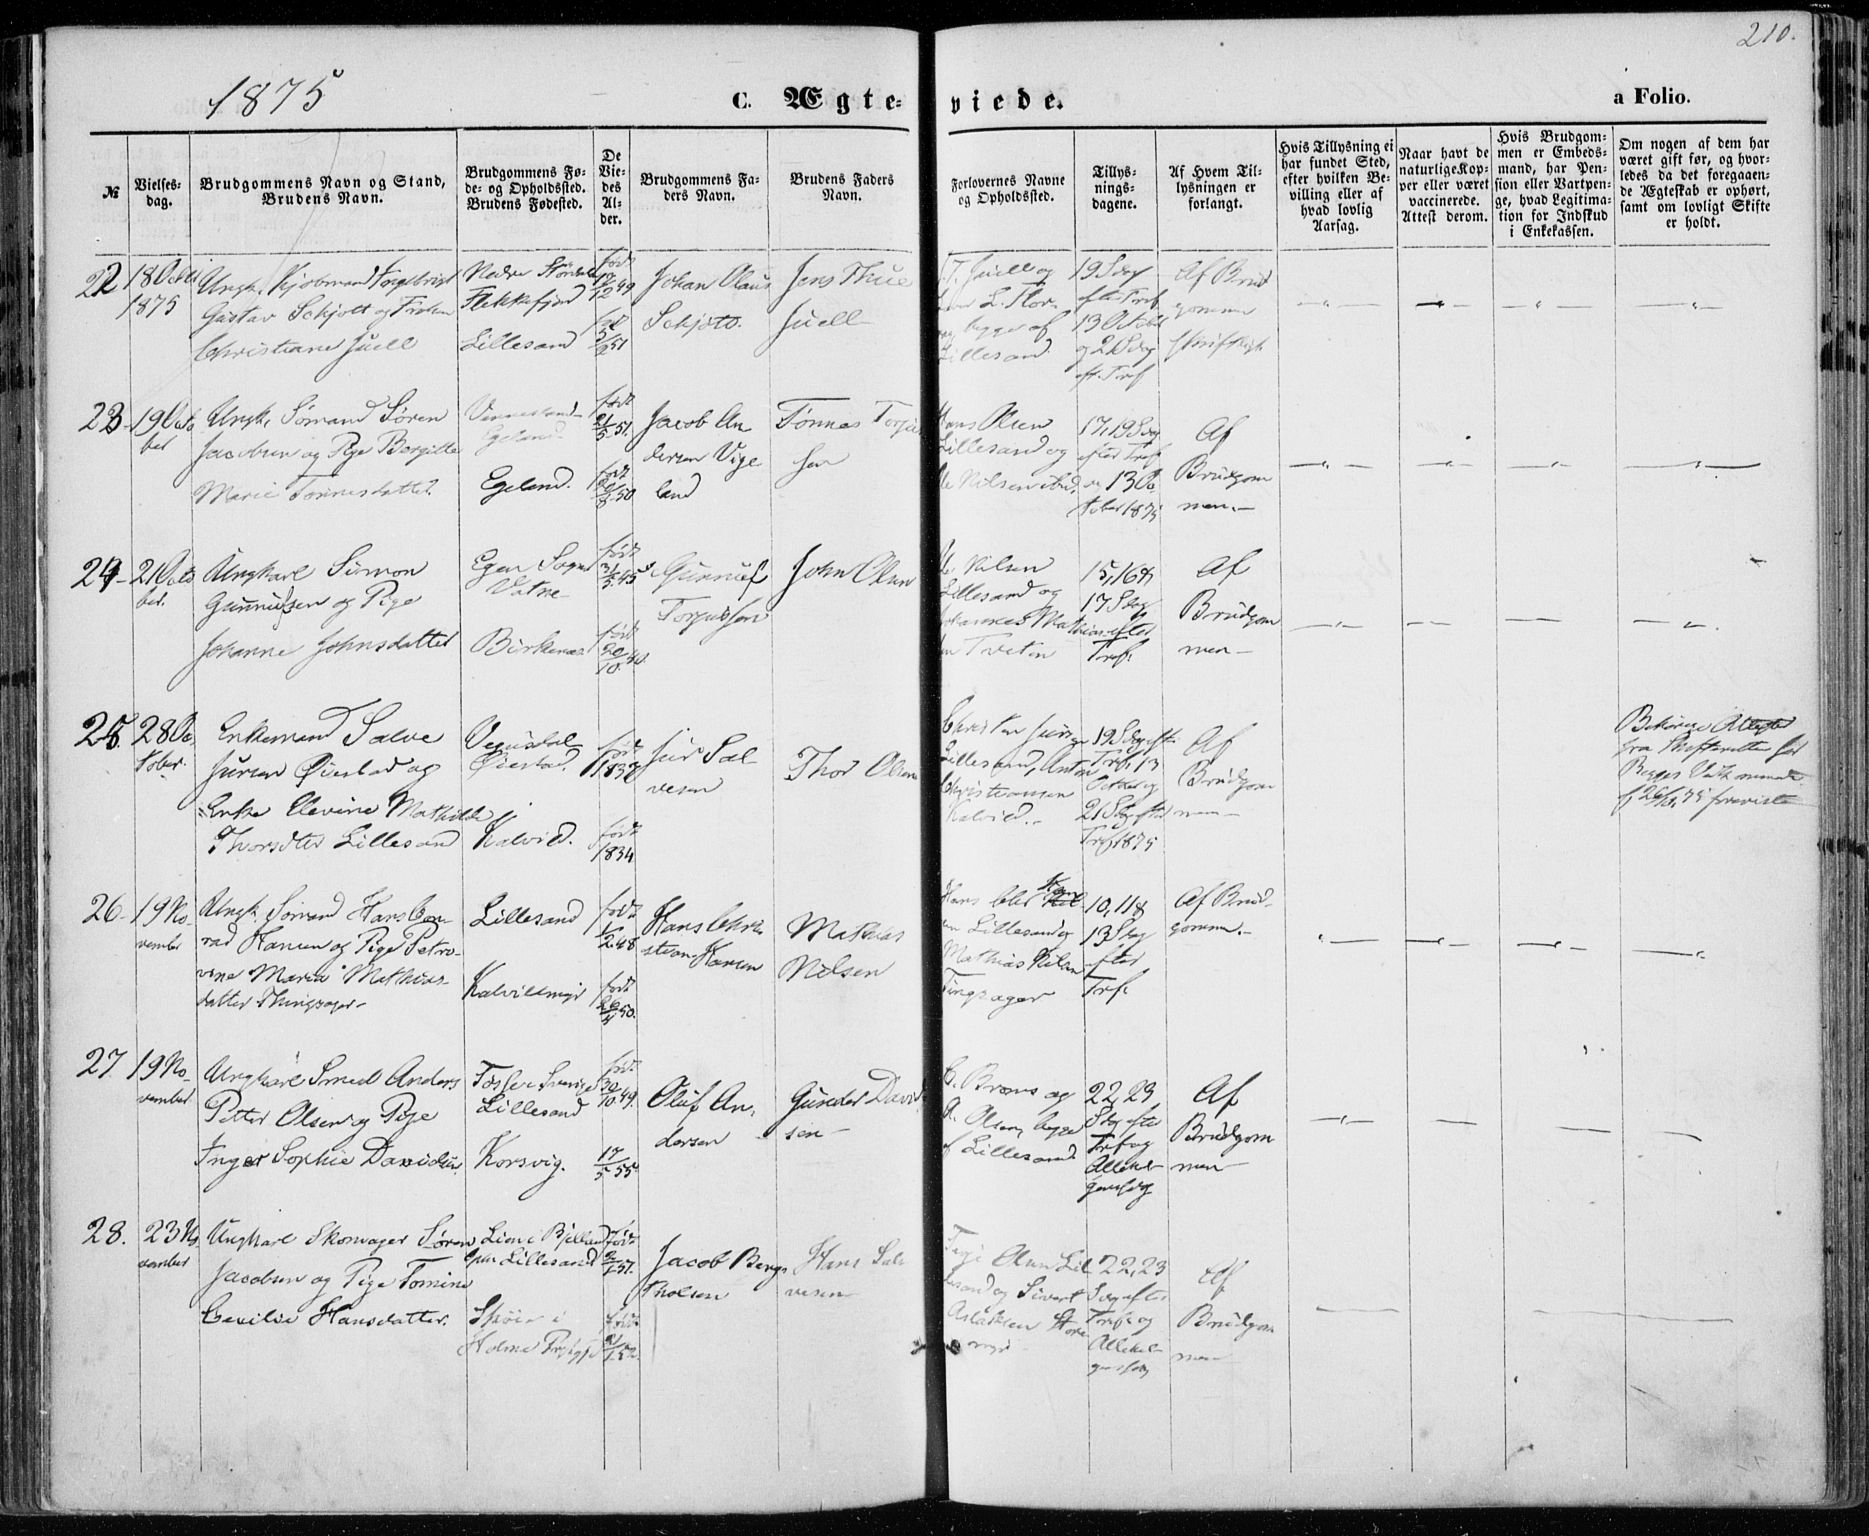 210.
1875
C. Ægteviede.
a Folio.
№
Vielsesdag.
Brudgommens Navn og Stand,
Brudens Navn.
Brudgommens Fø-
de- og Opholdssted.
Brudens Fødested.
De
Vie-
des
Al-
der.
Brudgommens Fa-
ders Navn.
Brudens Faders
Navn.
Forlovernes Navne
og Opholdssted.
Tillys-
nings-
dagene.
Af Hvem Til-
lysningen er
forlangt.
Hvis Tillysning ei
har fundet Sted,
efter hvilken Be-
villing eller af
hvad lovlig
Aarsag.
Naar havt de
naturlige Kop-
per eller været
vaccinerede.
Attest derom.
Hvis Brudgom-
men er Embeds-
mand, har Pen-
sion eller Vartpen-
ge, hvad Legitima-
tion for Indskud
i Enkekassen.
Om nogen af dem har
været gift før, og hvor-
ledes da det foregaaen-
de Ægteskab er ophørt,
samt om lovligt Skifte
er holdt.
22
18 Octbr
1875
Ungk. Kjøbmand
Gustav Schjött og Frøken
Christiane Juell
Flekkefjord
Lillesand
født
49
født
51
Johan Olaus
Schjött.
Jens Thue
Juell
T. Juell og
begge af
Lillesand
19 Sdag
efter Tref
13 October
og 21 Sdag
eft. Tref
Af Brud
gommen
skriftligt
23
19 Octo
ber
Ungk. Sømand Søren
Jacobsen og Pige Bergitte
Marie Tønnesdatter.
Egeland
Egeland.
født
21/5 51.
født
50
Jacob An
dersen Vige
land
Tønnes Torjus
sen
Hans Olsen
Lillesand og
Nilsen ibid.
17, 19 Sdag
efter Tref
og 13 Oc
tober 1875
Af
Brudgom
men.
24
21 Octo
ber.
Ungkarl Simon
Gunnufsen og Pige
Johanne Johnsdatter
Egen Sogn
Vatne
Birkenæs
født
31/3 45
født
20/10 40.
Gunnuf
Torjussen
John Olsen
Nilsen
Lillesand og
Johannes Mathias
Tveten
15, 16 &
17 Sdag
efter
Tref.
Af
Brudgom
men
25.
28 Oc
tober.
Enkemand Salve
Jursen Øiestad og
Enke Elevine Mathilde
Thorsdtr Lillesand
Vegusdal
Øiestad.
Kalvild.
født
1837
født
1834
Jur Sal
vesen
Thor Olsen
Christen Jur
Lillesand, Anton
Christiansen
Kalvild.
19 Sdag efter
Tref. 13
October og
21 Sdag efter
Tref 1875
Af
Brudgom
men
fra Skifteretten for
Begges Vedkommende
f. 26/10 75 foreviste
26
19 No
vember
Ungk. Sømand Hans Con
rad Hansen og Pige Petro-
vine Maria Mathias
datter Thingsager
Lillesand
Kalvildmyr
født
1/2 48
født
26/4 50.
Hans Chri
stian Hansen
Mathias
Nilsen
Lillesand og
Mathias Nilsen
Tingsager
10, 11 &
13 Sdag
efter
Tref.
Af Brud-
gommen.
27.
19 No
vember
Ungkarl Smed Anders
Petter Olsen og Pige
Inger Sophie Davidsen.
Sverige
Lillesand
Korsvig.
født
30/10 49.
17/5 55
Oluf An,
dersen
Gunder David
sen
C. Broms og
A. Olsen, begge
af Lillesand
22, 23,
Sdag efter
Tref og
Allehel
gensdag
Af
Brudgom
men
28.
23 No
vember
Ungkarl Skomager Søren
Jacobsen og Pige Tomine
Cecilie Hansdatter.
Lien i Bjelland
Lillesand
i
Holme Præstgj
født
51.
født
21/1 52.
Jacob Berg
tholsen
Hans Sal
vesen
Terje Olsen Lil
lesand og Sivert
Aslaksen Store
myr
22, 23
Sdag efter
Tref. og
Allehel
gensdag
Af
Brudgom
men